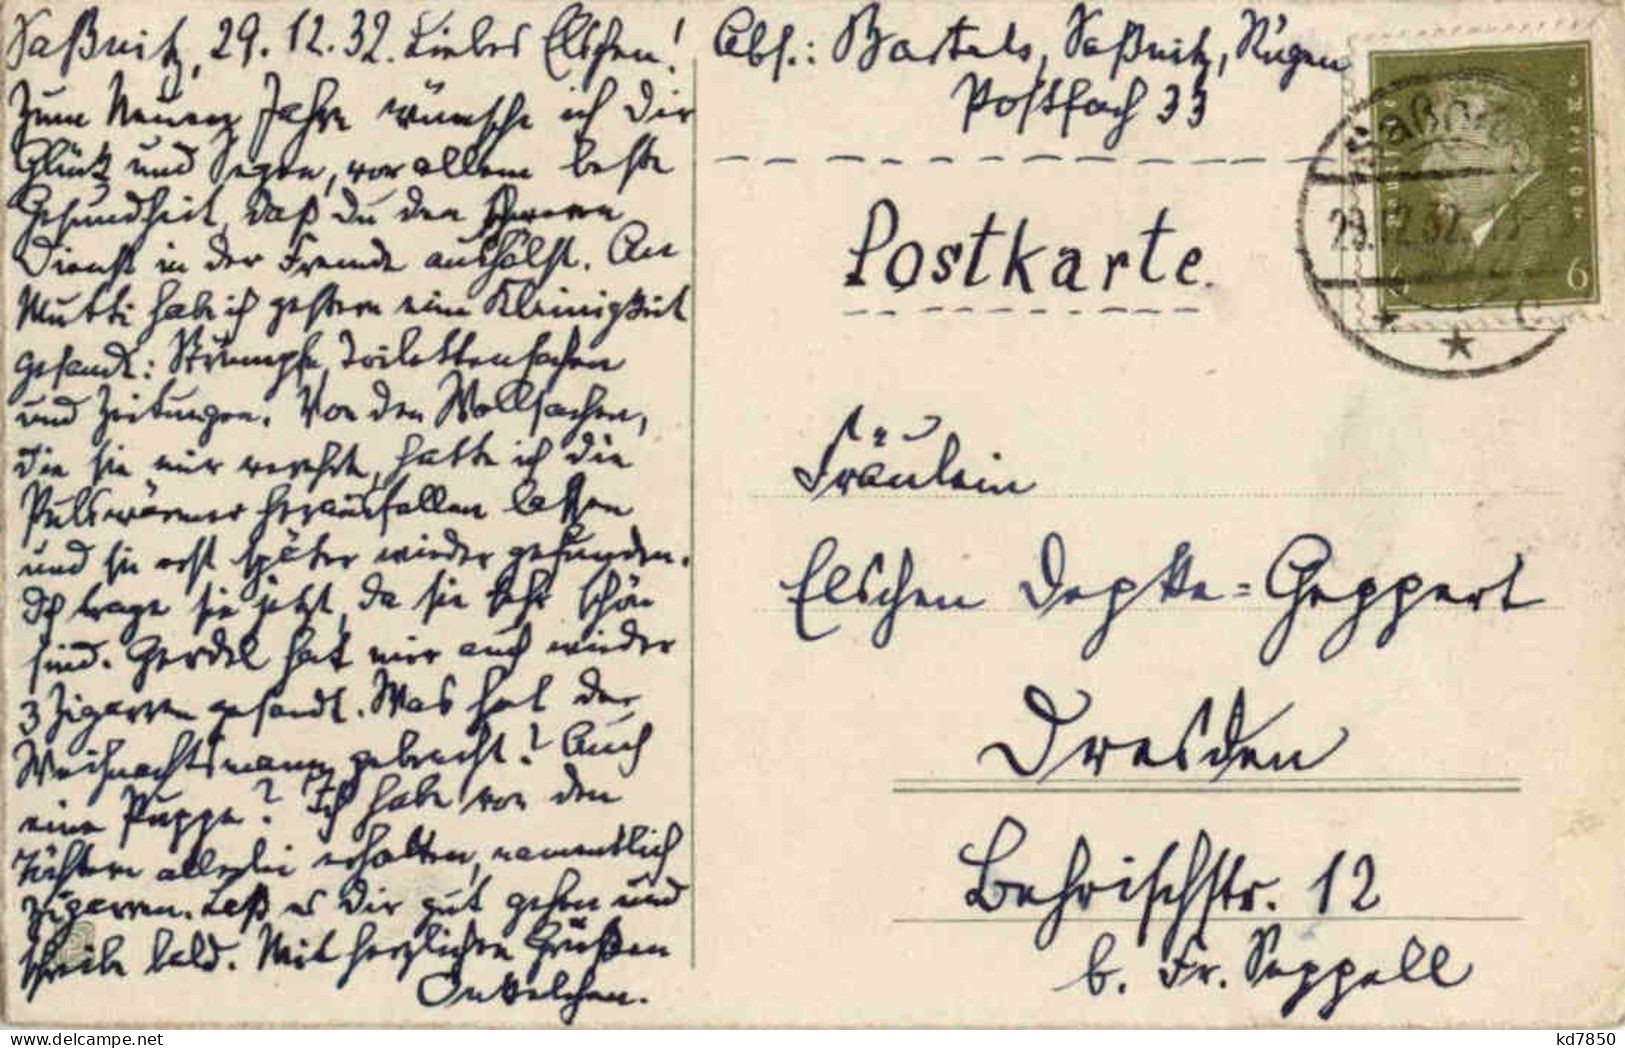 Saßnitz, 29.12.32. Liebes Elschen!
Zum Neuen Jahre wünsche ich Dir
Glück und Segen, vor allem beste
Gesundheit, daß Du den schweren
Dienst in der Fremde aushälst. An
Mutti habe ich gestern eine Kleinigkeit
gesandt: Strümpfe, Toilettensachen
und Zeitungen. Von den Wollsachen,
die sie mir verehrte, hatte ich die
Pulswärmer herausfallen lassen
und sie erst später wieder gefunden.
Ich trage sie jetzt, da sie sehr schön
sind. Gerdel hat mir auch wieder
3 Zigarren gesandt. Was hat der
Weihnachtsmann gebracht? Auch
eine Puppe? Ich habe von den
Töchtern allerlei erhalten, namentlich
Zigarren. Laß es Dir gut gehen und
schreibe bald. Mit herzlichen Grüßen
Onkelchen.
Abs.: Bartels, Saßnitz, Rügen
Postfach 33
Postkarte.
Fräulein
Elschen Depke-Geppert
Dresden
Behrischstr. 12
b. Fr. Seppell
29.12.32
6
kd7850